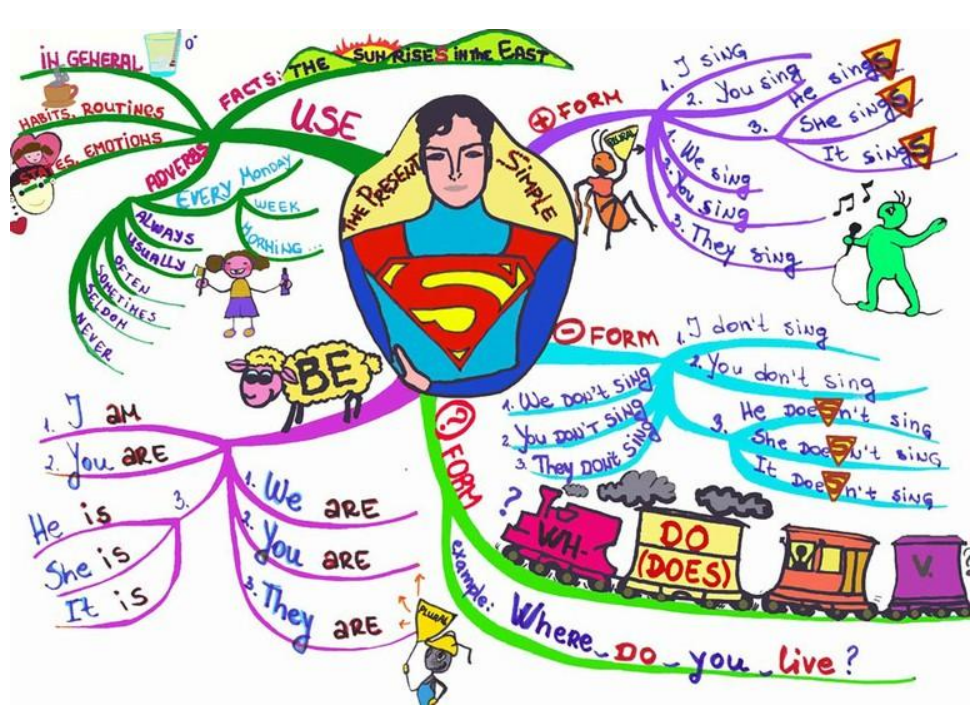 THE PRESENT SIMPLE
S
USE
FACTS: THE SUN RISES IN THE EAST
IN GENERAL
0°
HABITS, ROUTINES
STATES, EMOTIONS
ADVERBS
EVERY MONDAY
WEEK
MORNING...
ALWAYS
USUALLY
OFTEN
SOMETIMES
SELDOM
NEVER
+ FORM
1. I SING
2. You sing
3.
He singS
SHe singS
It singS
1. We sing
2. You sing
3. They sing
PLURAL
- FORM
1. I don't sing
2. You don't sing
3.
He DOESn't sing
She DOESn't sing
It DOESn't sing
1. We DON'T sing
2. You DON'T SING
3. They DON'T sing
? FORM
?
WH-
DO
(DOES)
V.
?
example:
Where_DO_you_live?
BE
1. I am
2. You are
3.
He is
She is
It is
1. We are
2. You are
3. They are
PLURAL